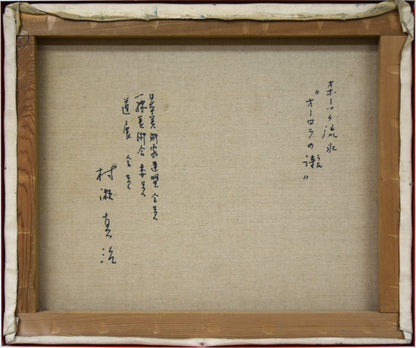 オホーツク流氷
"オーロラの譜"
日本美術家連盟会員
一線美術会委員
道展会員
村瀬真治